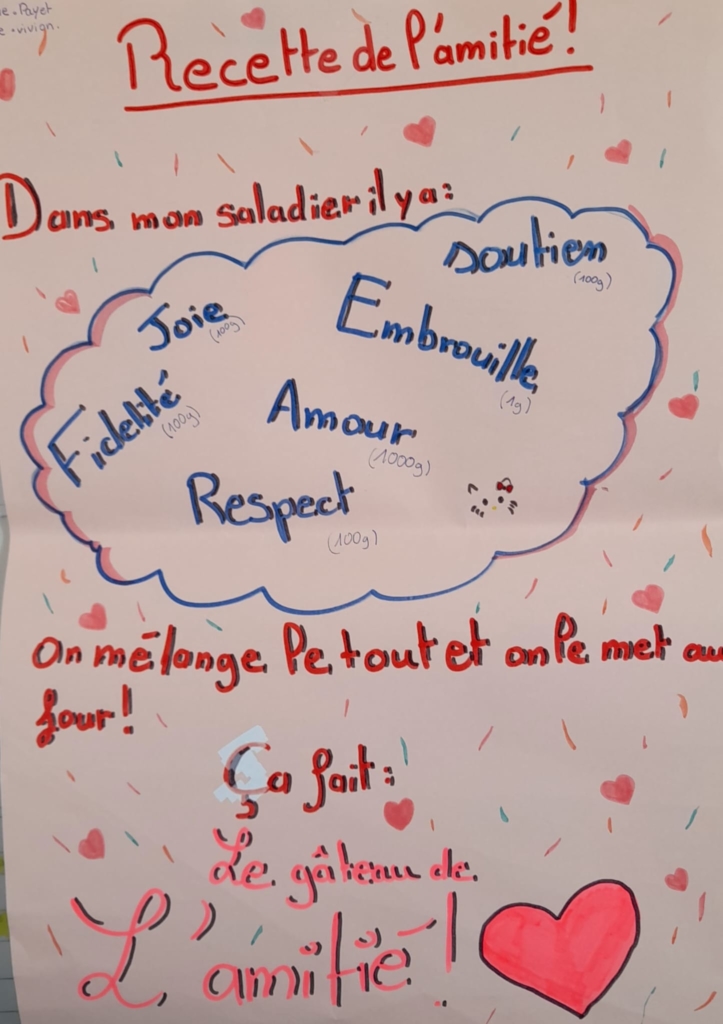 Payet
Recette de l'amitié!
Dans mon saladier il y a:
soutien
(100g)
Joie
(100g)
Embrouille
(1g)
Fidelité
(100g)
Amour
(1000g)
Respect
(100g)
on mélange le tout et on le met au
four!
Ça fait:
Le gâteau de
L'amitié!